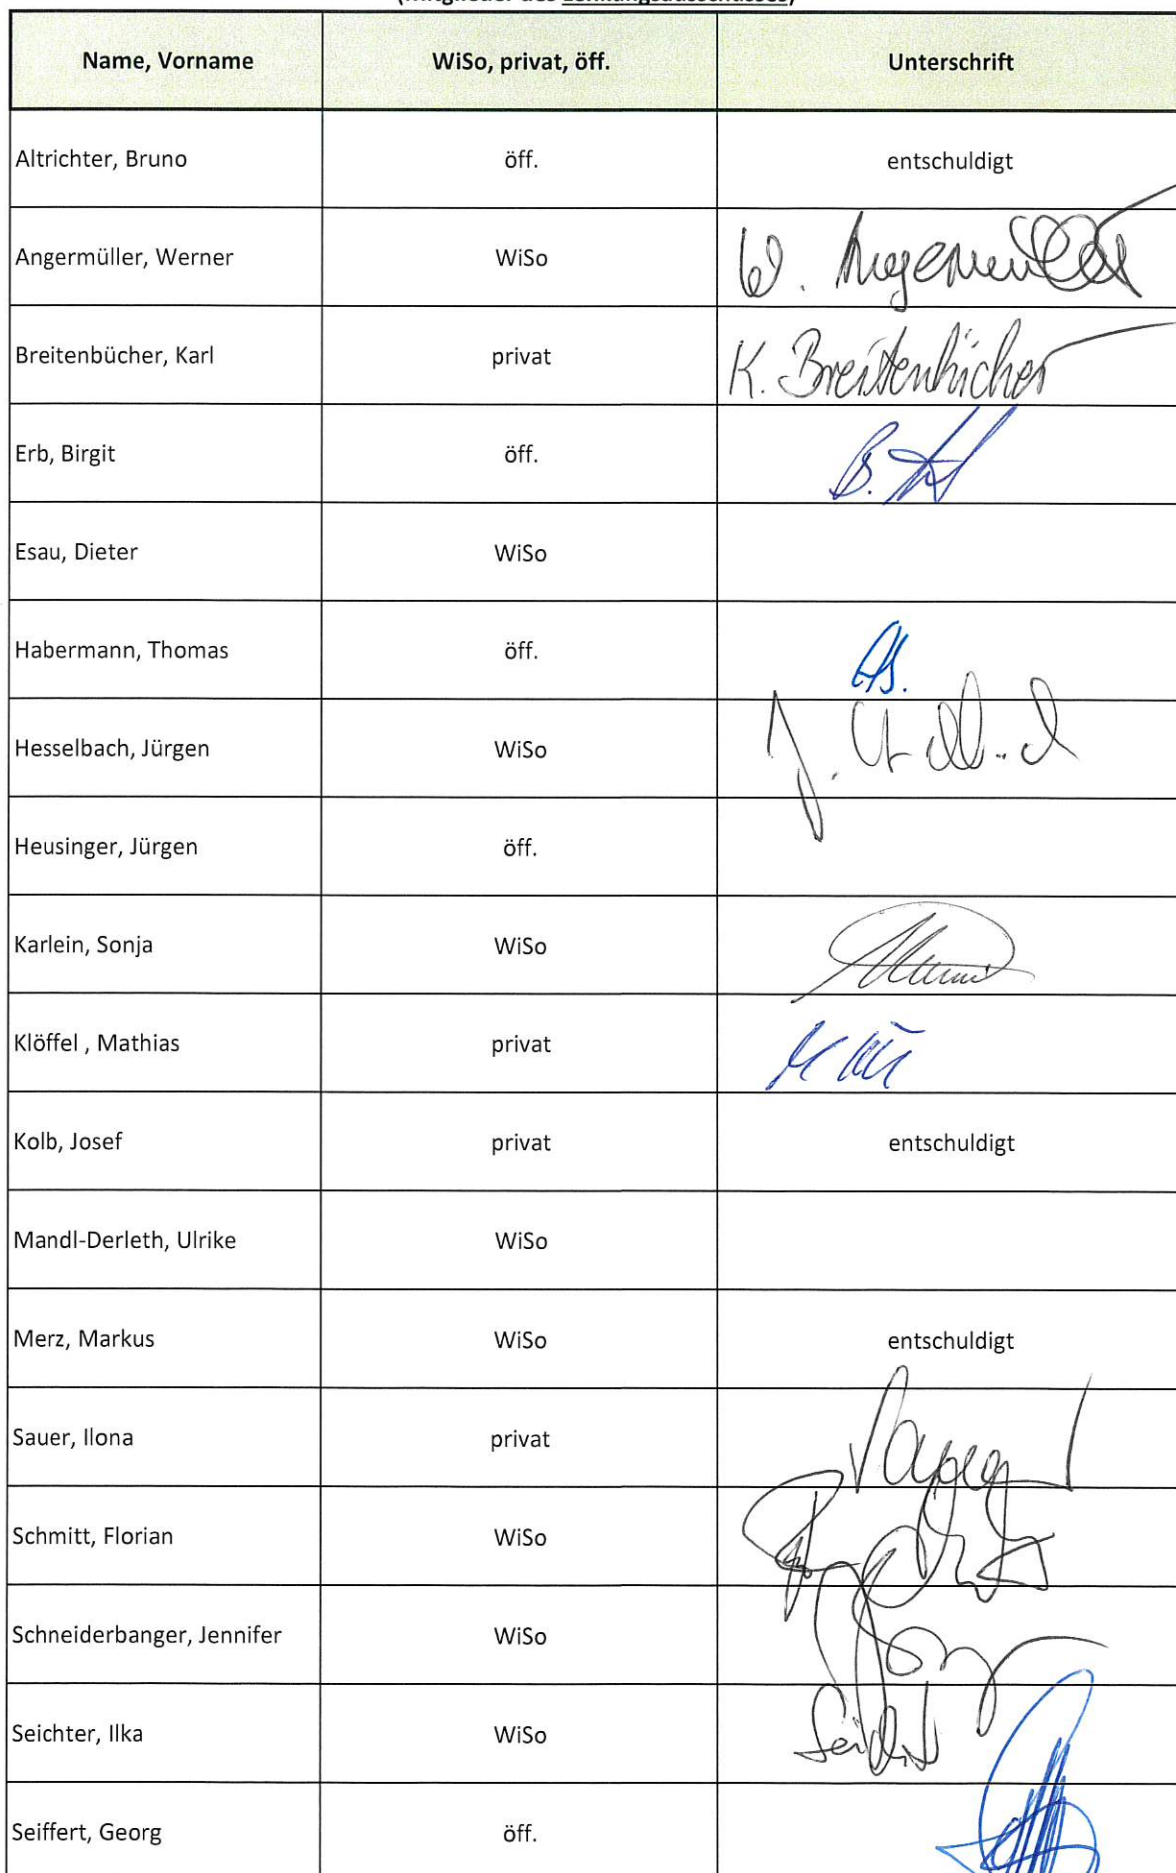 (Mitglieder des Lenkungsausschusses)
Name, Vorname WiSo, privat, öff. Unterschrift
Altrichter, Bruno öff. entschuldigt
Angermüller, Werner WiSo W. Angermüller
Breitenbücher, Karl privat K. Breitenbücher
Erb, Birgit öff. B.
Esau, Dieter WiSo
Habermann, Thomas öff.
Hesselbach, Jürgen WiSo J.
Heusinger, Jürgen öff.
Karlein, Sonja WiSo
Klöffel , Mathias privat
Kolb, Josef privat entschuldigt
Mandl-Derleth, Ulrike WiSo
Merz, Markus WiSo entschuldigt
Sauer, Ilona privat
Schmitt, Florian WiSo
Schneiderbanger, Jennifer WiSo
Seichter, Ilka WiSo
Seiffert, Georg öff.